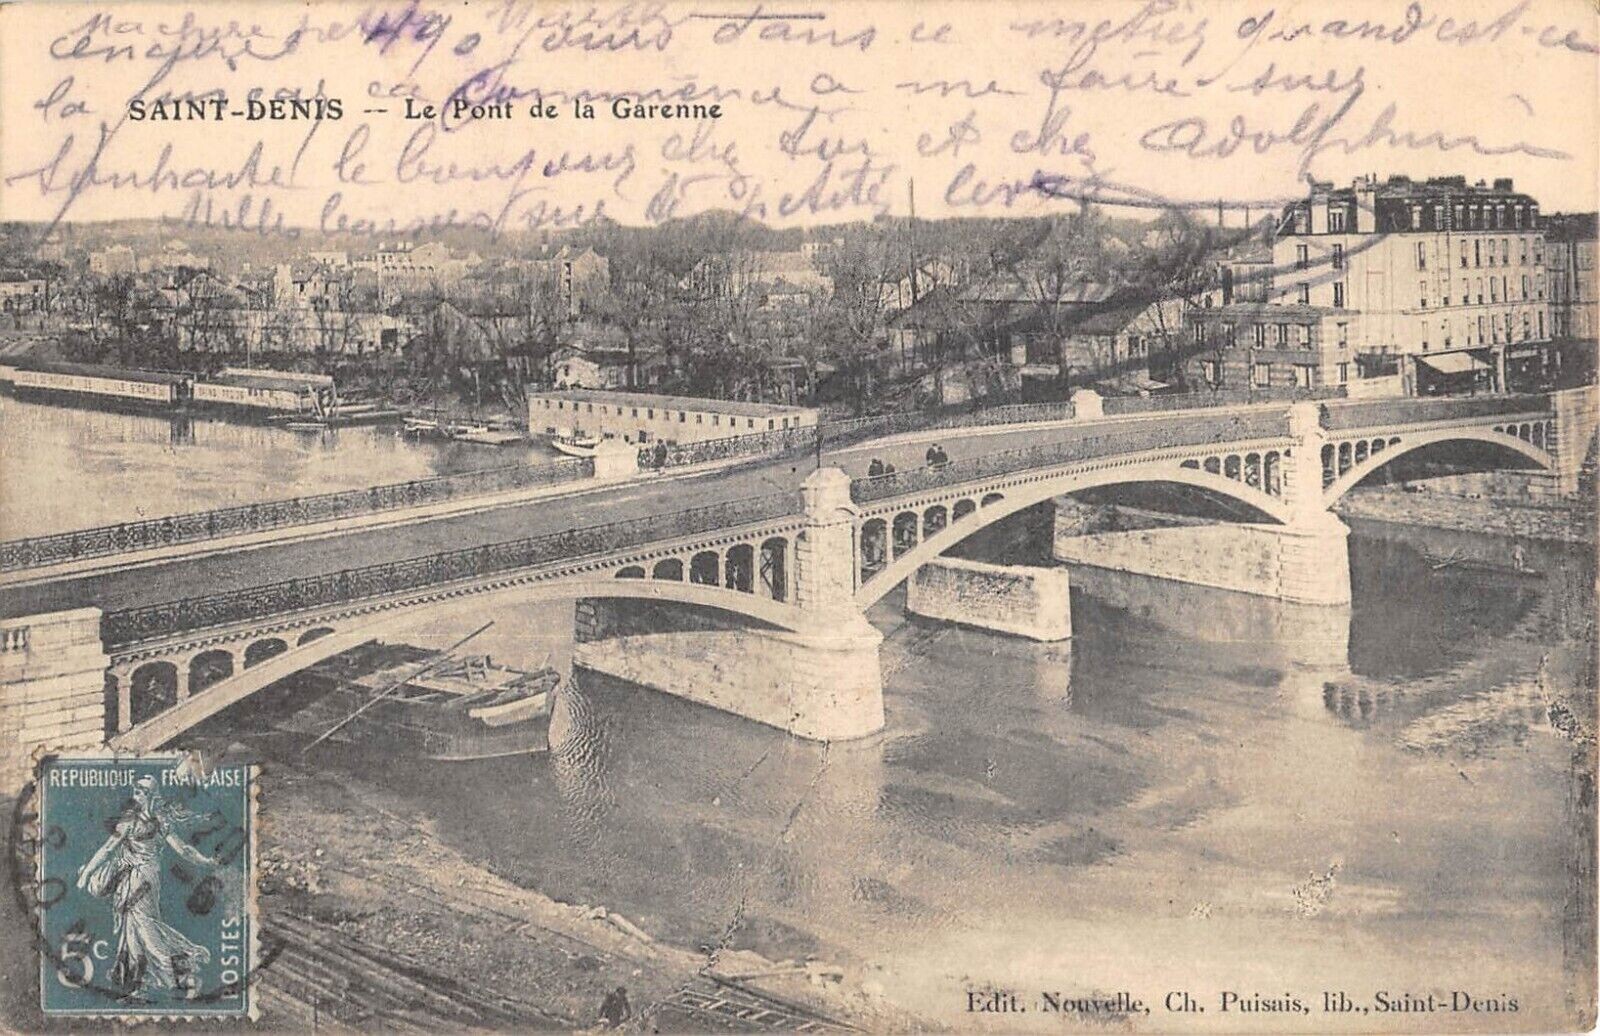 Ma chere petite
encure 490 jours dans ce metier quand est-ce
la ca commence a me faire suer
Souhaite le bonjour chez toi et chez Adolphine
Milles baisers sur tes petites levres
SAINT-DENIS -- Le Pont de la Garenne
REPUBLIQUE FRANÇAISE
5c
POSTES
Edit. Nouvelle, Ch. Puisais, lib., Saint-Denis